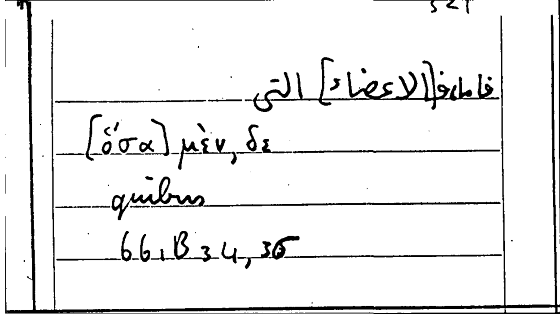 [الاعضاء] التى
[ὅσα] μὲν, δὲ
quibus
661B34,35